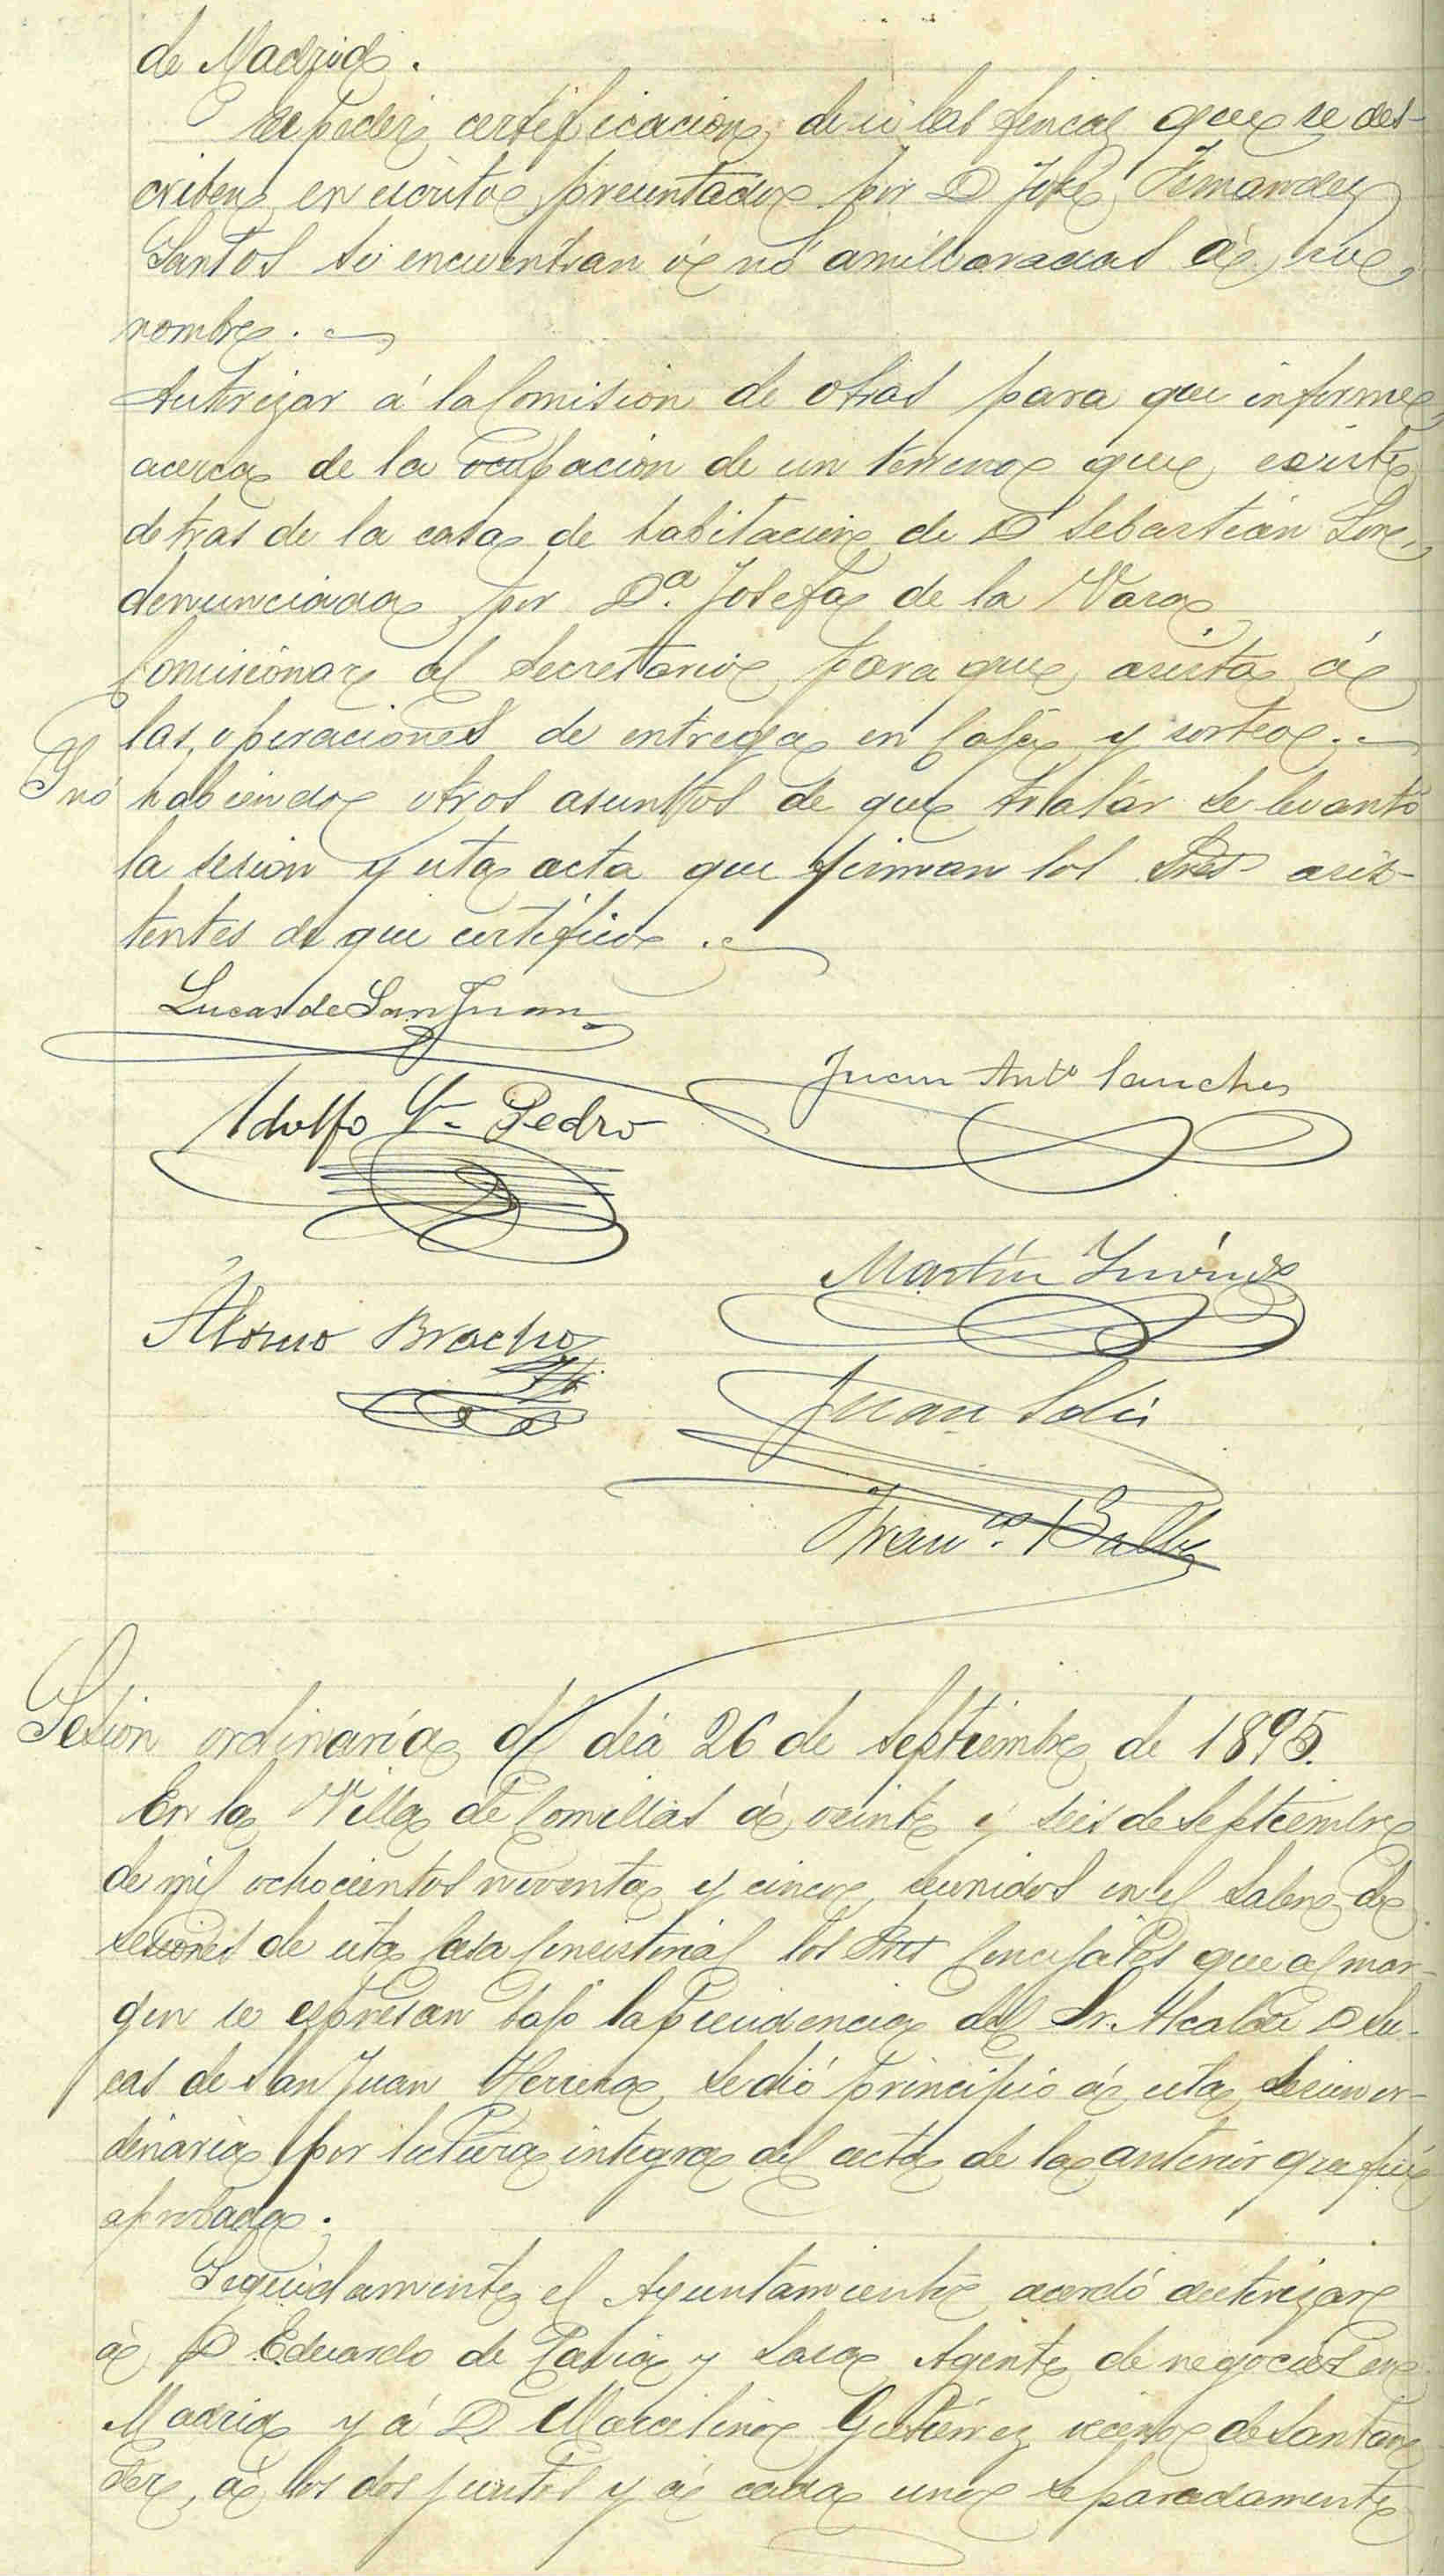 de Madrid.
Expedir certificacion de si las fincas que se des-
criben en escrito presentado por D José Fernandez
Santos se encuentran ó nó amillaradas á su
nombre.
Autorizar á la Comision de obras para que informe
acerca de la ocupacion de un terreno que existe
detras de la casa de habitacion de D Sebastian
denunciada por D.ª Josefa de la Vara.
Comisionar al Secretario para que asista á
las operaciones de entrega en Caja y sorteo.
Y nó habiendo otros asuntos de que tratar se levantó
la sesion y esta acta que firman los Sres asis-
tentes de que certifico.
Lucas de San Juan
Juan Antº Sanches
Adolfo Pedro
Martin
Alonso Bracho
Juan Solis
Franco.
Sesion ordinaria del dia 26 de Septiembre de 1895.
En la Villa de Comillas á veinte y seis de Septiembre
de mil ochocientos noventa y cinco, reunidos en el Salon de
sesiones de esta Casa Consistorial los Sres Concejales que al mar-
gen se espresan bajo la presidencia del Sr. Alcalde D Lu-
cas de San Juan Herrera, se dió principio á esta Sesion or-
dinaria por lectura integra del acta de la anterior que fué
aprobada.
Seguidamente el Ayuntamiento acordó autorizar
á D Eduardo de y Agente de negocios en
Madrid y á D Marcelino Gutiérrez vecino de Santan
der, á los dos juntos y á cada uno separadamente